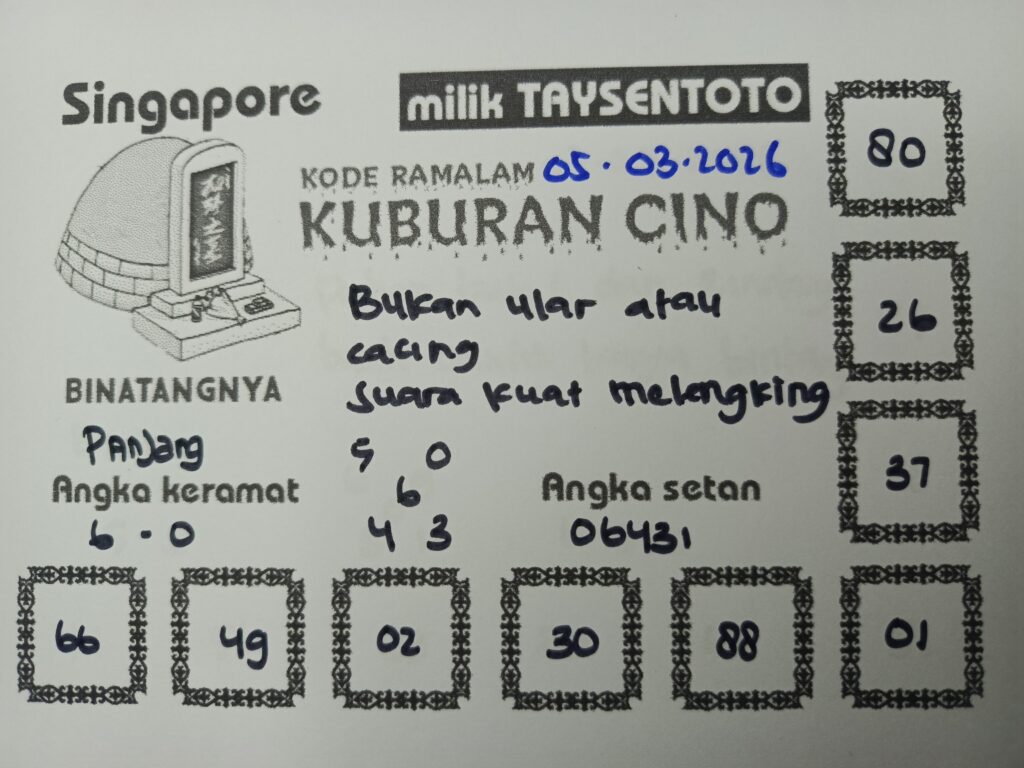 Singapore
milik TAYSENTOTO
KODE RAMALAM 05.03.2026
KUBURAN CINO
Bukan ular atau
cacing
suara kuat melengking
BINATANGNYA
Panjang
Angka keramat
6 - 0
5 0
6
4 3
Angka setan
06431
80
26
37
66 49 02 30 88 01